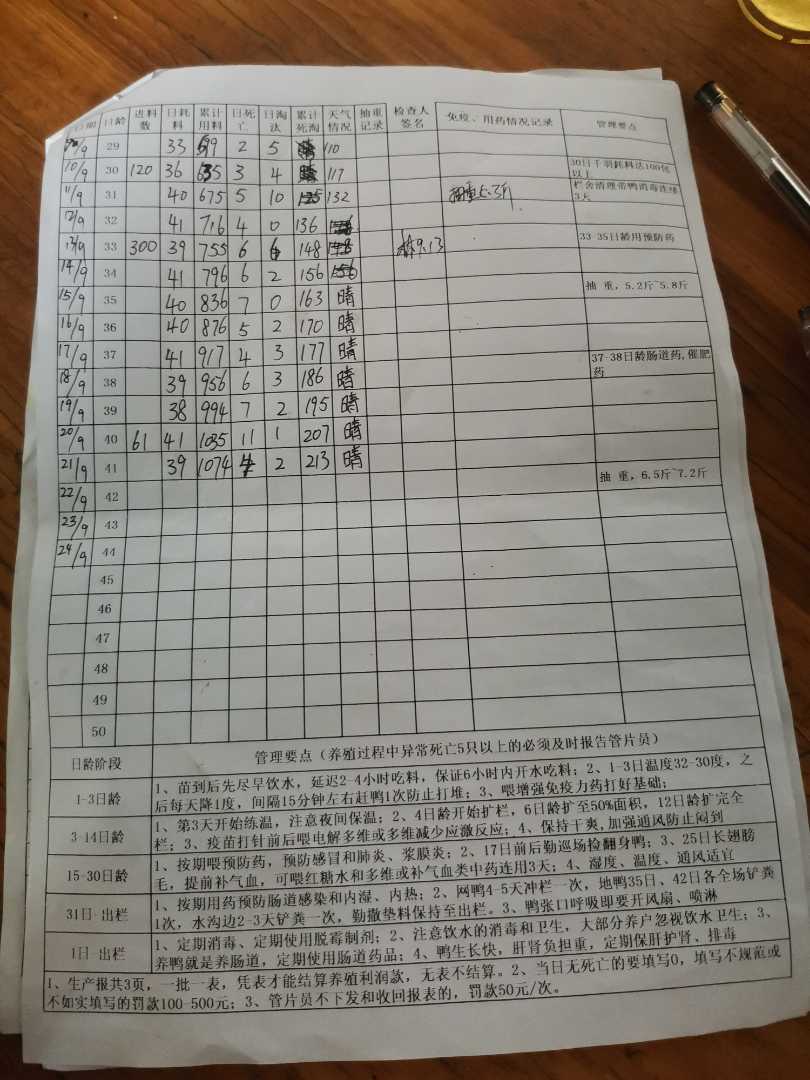 日期 日龄 进料数 日耗料 累计用料 日死亡 日淘汰 累计死淘 天气情况 抽重记录 检查人签名 免疫、用药情况记录 管理要点
/9 29 33 2 5 110
10/9 30 120 36 635 3 4 117 30日千羽耗料达100包以上
11/9 31 40 675 5 10 132 抽重5.3斤 栏舍清理带鸭消毒连续3天
12/9 32 41 716 4 0 136
13/9 33 300 39 755 6 6 148 9.13 33-35日龄用预防药
14/9 34 41 796 6 2 156
抽 重，5.2斤~5.8斤
15/9 35 40 836 7 0 163 晴
16/9 36 40 876 5 2 170 晴
17/9 37 41 917 4 3 177 晴 37-38日龄肠道药,催肥药
18/9 38 39 956 6 3 186 晴
19/9 39 38 994 7 2 195 晴
20/9 40 61 41 1035 11 1 207 晴
21/9 41 39 1074 4 2 213 晴 抽 重，6.5斤~7.2斤
22/9 42
23/9 43
24/9 44
45
46
47
48
49
50
日龄阶段 管理要点（养殖过程中异常死亡5只以上的必须及时报告管片员）
1-3日龄 1、苗到后先尽早饮水，延迟2-4小时吃料，保证6小时内开水吃料；2、1-3日温度32-30度，之
后每天降1度，间隔15分钟左右赶鸭1次防止打堆；3、喂增强免疫力药打好基础；
3-14日龄 1、第3天开始练温，注意夜间保温；2、4日龄开始扩栏，6日龄扩至50%面积，12日龄扩完全
栏；3、疫苗打针前后喂电解多维或多维减少应激反应；4、保持干爽,加强通风防止闷到
15-30日龄 1、按期喂预防药，预防感冒和肺炎、浆膜炎；2、17日前后勤巡场捡翻身鸭；3、25日长翅膀
毛，提前补气血，可喂红糖水和多维或补气血类中药连用3天；4、湿度、温度、通风适宜
31日-出栏 1、按期用药预防肠道感染和内湿、内热；2、网鸭4-5天冲栏一次，地鸭35日、42日各全场铲粪
1次，水沟边2-3天铲粪一次，勤撒垫料保持至出栏。3、鸭张口呼吸即要开风扇、喷淋
1日-出栏 1、定期消毒、定期使用脱霉制剂；2、注意饮水的消毒和卫生，大部分养户忽视饮水卫生；3、
养鸭就是养肠道，定期使用肠道药品；4、鸭生长快，肝肾负担重，定期保肝护肾、排毒
1、生产报共3页，一批一表，凭表才能结算养殖利润款，无表不结算。2、当日无死亡的要填写0，填写不规范或
不如实填写的罚款100-500元；3、管片员不下发和收回报表的，罚款50元/次。